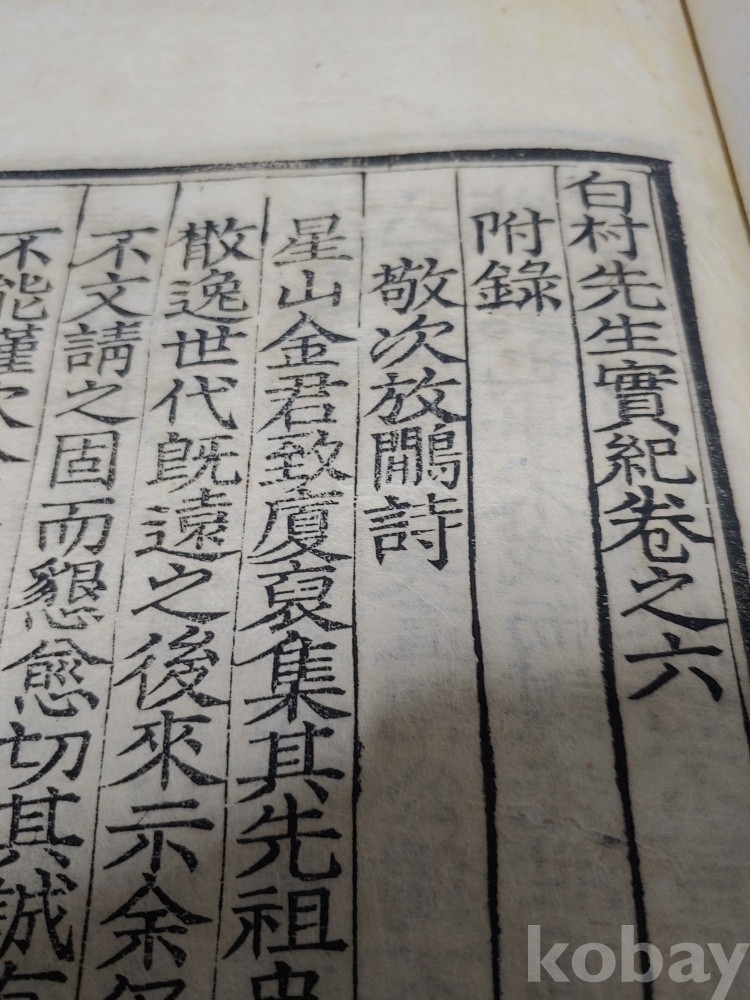 白村先生實紀卷之六
附錄
敬次放鷳詩
星山金君致廈裒集其先祖
散逸世代旣遠之後來示余
不文請之固而懇愈切其誠
不能謹次
kobay